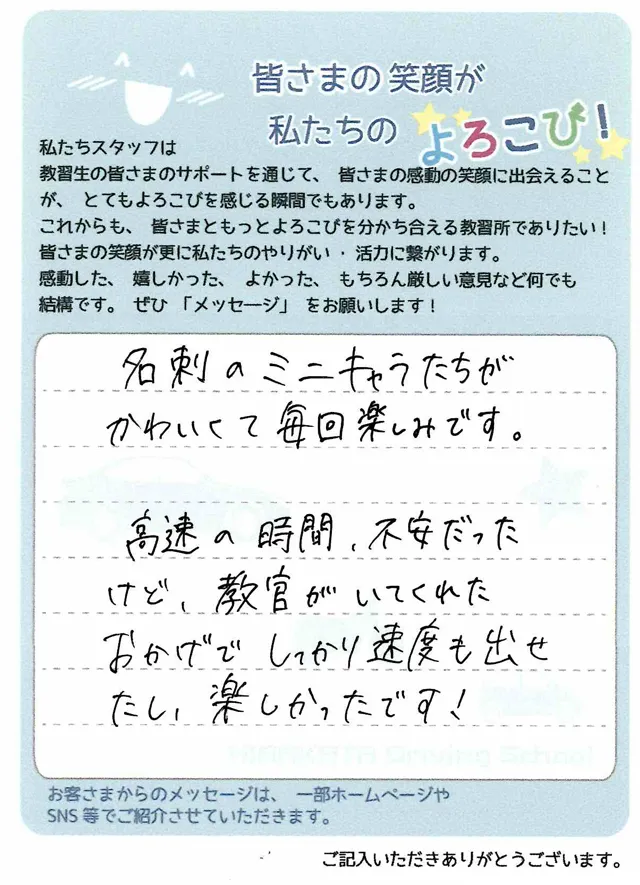 皆さまの笑顔が
私たちの よろこび!
私たちスタッフは
教習生の皆さまのサポートを通じて、 皆さまの感動の笑顔に出会えること
が、 とてもよろこびを感じる瞬間でもあります。
これからも、 皆さまともっとよろこびを分かち合える教習所でありたい!
皆さまの笑顔が更に私たちのやりがい・活力に繋がります。
感動した、 嬉しかった、 よかった、 もちろん厳しい意見など何でも
結構です。 ぜひ 「メッセージ」 をお願いします!
名刺のミニキャラたちが
かわいくて毎回楽しみです。
高速の時間、不安だった
けど、教官がいてくれた
おかげでしっかり速度も出せ
たし、楽しかったです!
Driving School
お客さまからのメッセージは、 一部ホームページや
SNS 等でご紹介させていただきます。
ご記入いただきありがとうございます。